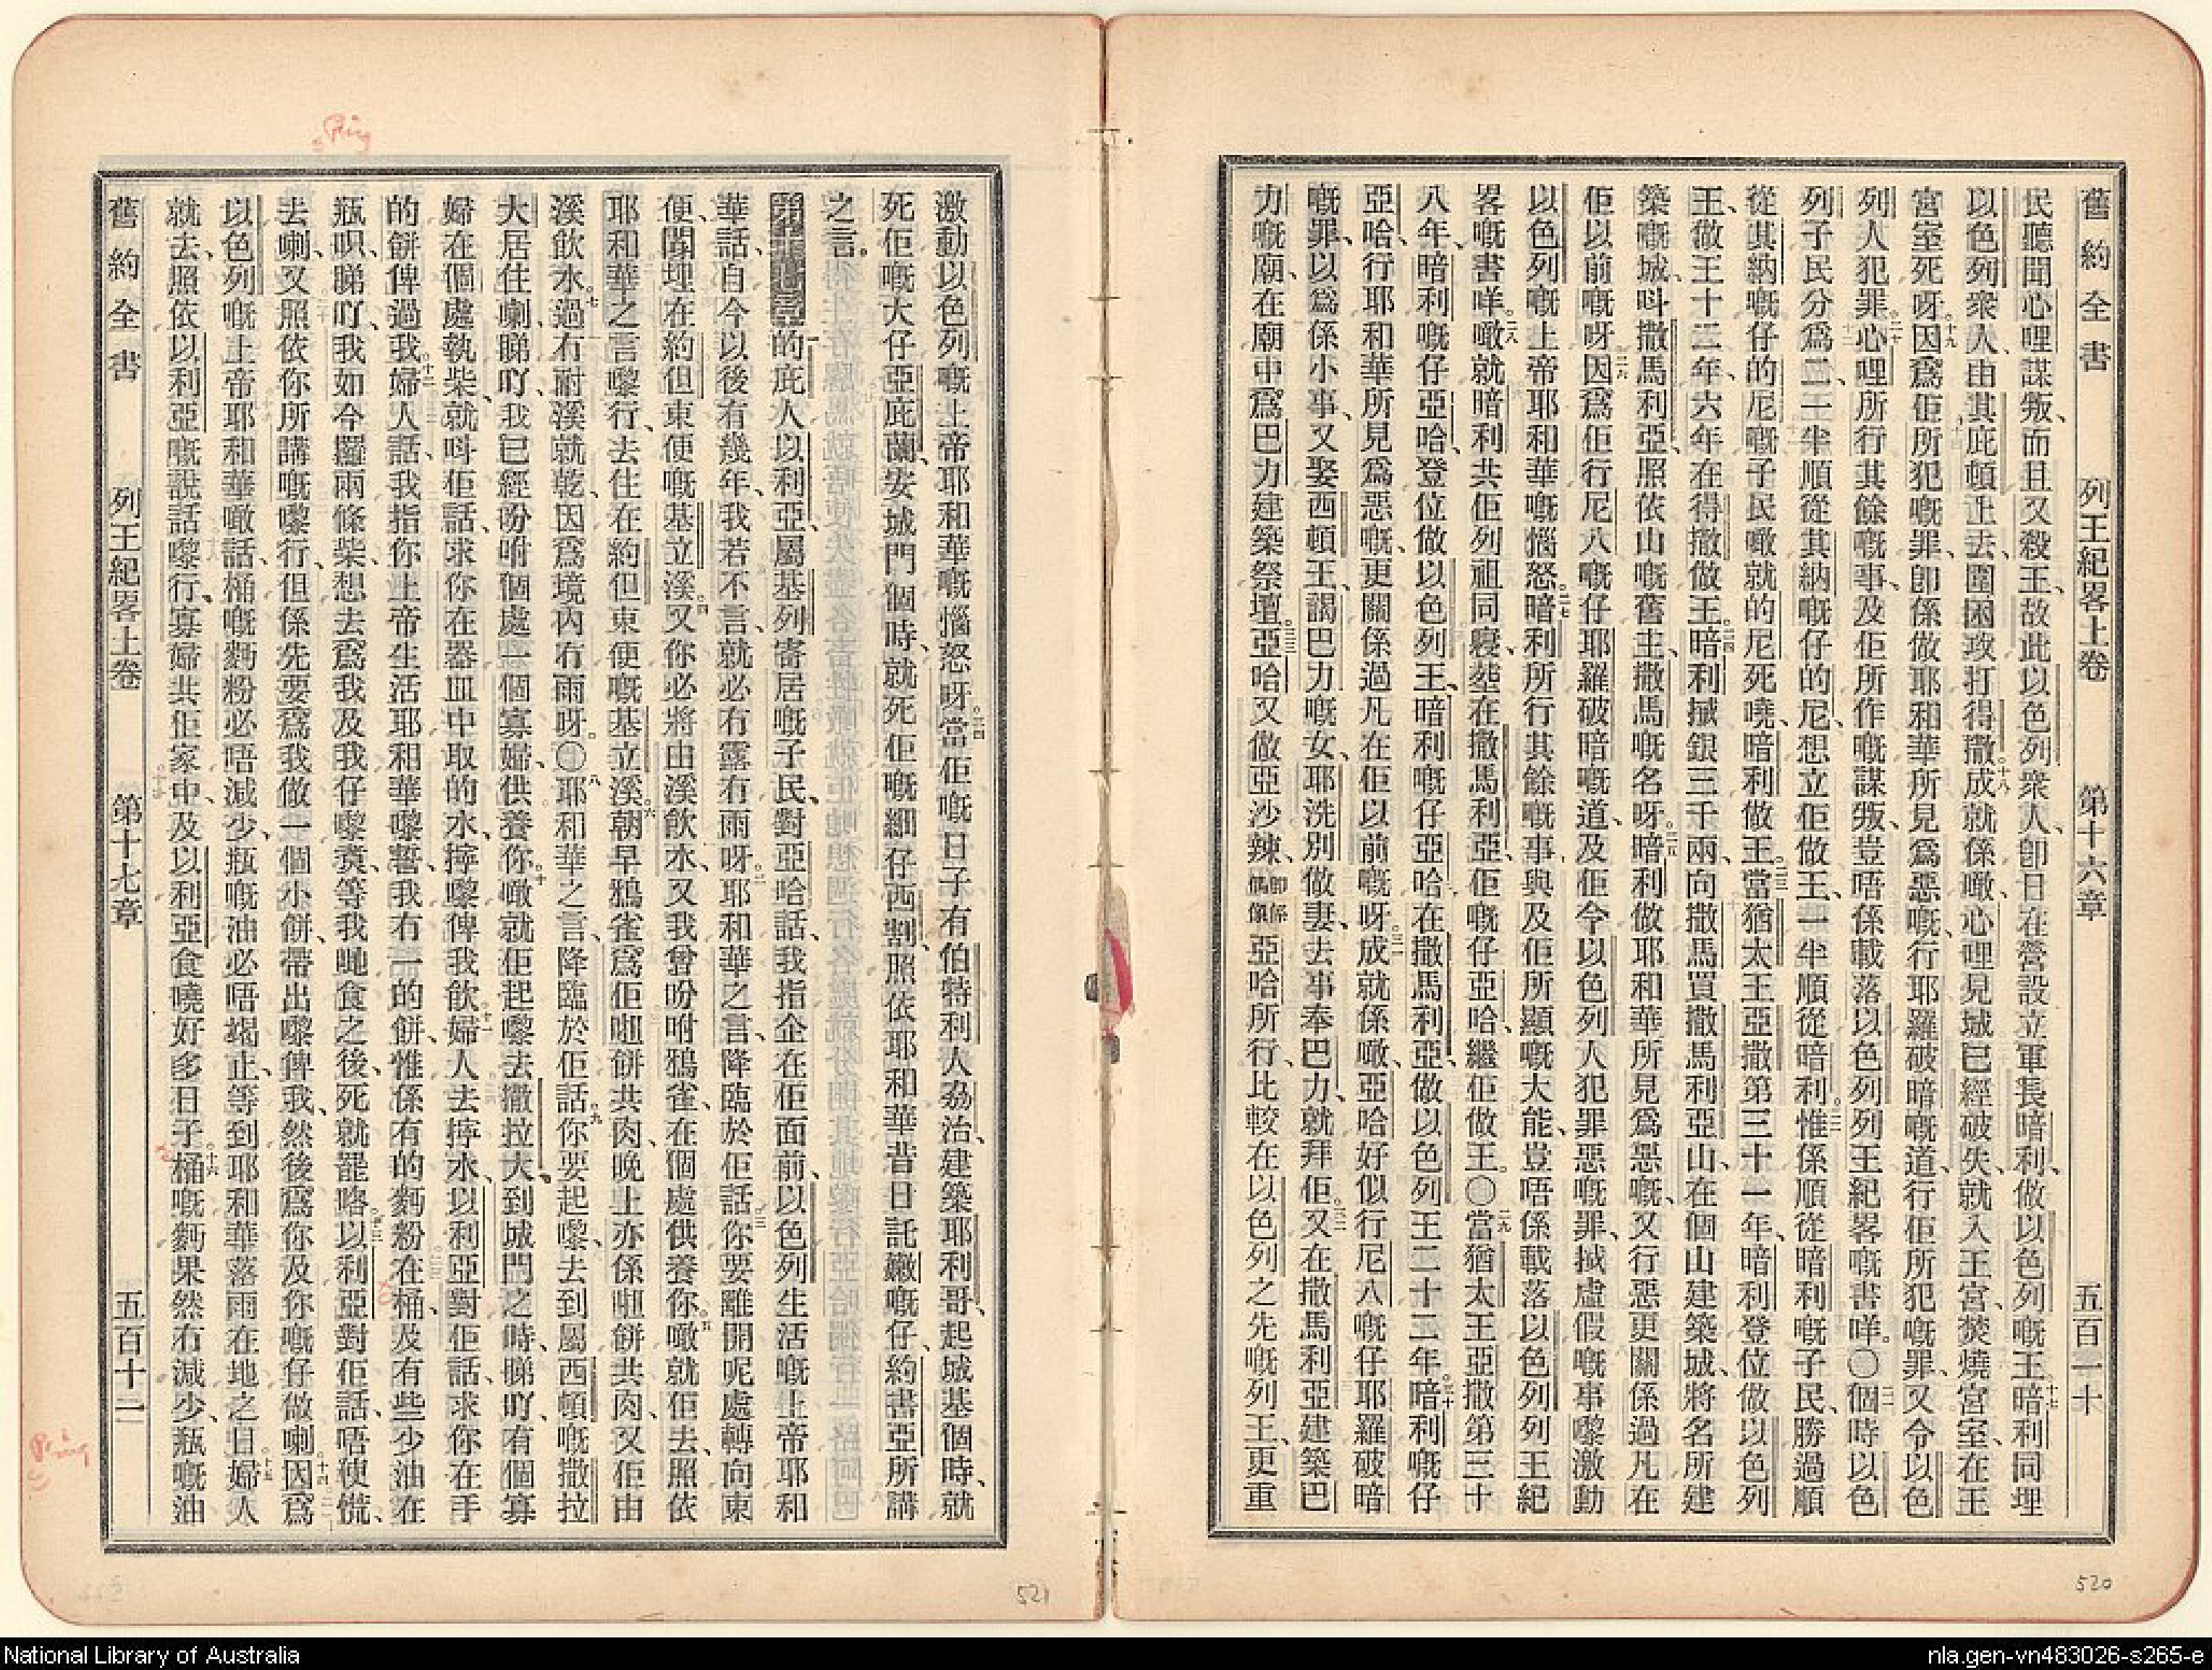 舊約全書 列王紀畧上卷 第十六章 五百一十
民聽聞心哩謀叛、而且又殺王、故此以色列衆人、卽日在營設立軍長暗利、做以色列嘅王、十七暗利同埋
以色列衆人、由其庇頓上去、圍困攻打得撒。十八成就係噉、心哩見城已經破失、就入王宮、焚燒宮室、在王
宮室死呀。十九因爲佢所犯嘅罪、卽係做耶和華所見爲惡嘅、行耶羅破暗嘅道、行佢所犯嘅罪、又令以色
列人犯罪。二十心哩所行其餘嘅事、及佢所作嘅謀叛、豈唔係載落以色列列王紀畧嘅書咩。〇二一個時以色
列子民分爲二、一半順從其納嘅仔的尼、想立佢做王、一半順從暗利。二二惟係順從暗利嘅子民、勝過順
從其納嘅仔的尼嘅子民、噉就的尼死嘵、暗利做王。二三當猶太王亞撒第三十一年、暗利登位做以色列
王、做王十二年、六年在得撒做王。二四暗利㨂銀三千兩、向撒馬買撒馬利亞山、在個山建築城、將名所建
築嘅城、呌撒馬利亞、照依山嘅舊主、撒馬嘅名呀。二五暗利做耶和華所見爲惡嘅、又行惡更關係過凡在
佢以前嘅呀、二六因爲佢行尼八嘅仔耶羅破暗嘅道、及佢令以色列人犯罪惡嘅罪、㨂虛假嘅事嚟激動
以色列嘅上帝耶和華嘅惱怒。二七暗利所行其餘嘅事、與及佢所顯嘅大能、豈唔係載落以色列列王紀
畧嘅書咩。二八噉就暗利共佢列祖同寢、塟在撒馬利亞、佢嘅仔亞哈、繼佢做王。〇二九當猶太王亞撒第三十
八年、暗利嘅仔亞哈、登位做以色列王、暗利嘅仔亞哈在撒馬利亞、做以色列王二十二年。三十暗利嘅仔
亞哈、行耶和華所見爲惡嘅、更關係過凡在佢以前嘅呀。三一成就係噉、亞哈好似行尼八嘅仔耶羅破暗
嘅罪、以爲係小事、又娶西頓王、謁巴力嘅女、耶洗別做妻、去事奉巴力、就拜佢。三二又在撒馬利亞建築巴
力嘅廟、在廟中爲巴力建築祭壇。三三亞哈又做亞沙辣、卽係偶像亞哈所行、比較在以色列之先嘅列王、更重
激動以色列嘅上帝耶和華嘅惱怒呀。三四當佢嘅日子、有伯特利人劦治、建築耶利哥、起城基個時、就
死佢嘅大仔亞庇蘭、安城門個時、就死佢嘅細仔西割、照依耶和華昔日託嫩嘅仔、約書亞所講
之言。
第十七章一的庇人以利亞、屬基列寄居嘅子民、對亞哈話、我指企在佢面前、以色列生活嘅上帝耶和
華話、自今以後有幾年、我若不言、就必有露有雨呀。二耶和華之言、降臨於佢話、三你要離開呢處轉向東
便、閟埋在約但東便嘅基立溪。四又你必將由溪飲水、又我曾吩咐鴉雀、在個處供養你。五噉就佢去、照依
耶和華之言嚟行、去住在約但東便嘅基立溪。六朝早鴉雀爲佢𠹌餅共肉、晚上亦係𠹌餅共肉、又佢由
溪飲水。七過有耐溪就乾、因爲境內冇雨呀。〇八耶和華之言、降臨於佢話、九你要起嚟、去到屬西頓嘅撒拉
大居住喇、睇吖、我已經吩咐個處一個寡婦、供養你。十噉就佢起嚟去撒拉大、到城門之時、睇吖、有個寡
婦在個處執柴、就呌佢話、求你在器皿中取的水、擰嚟俾我飲。十一婦人去擰水、以利亞對佢話、求你在手
的餅俾過我。十二婦人話、我指你上帝生活耶和華嚟誓、我有一的餅、惟係有的麪粉在桶、及有些少油在
瓶呮、睇吖、我如今攞兩條柴、想去爲我及我仔嚟𤓓、等我哋食之後、死就罷咯。十三以利亞對佢話、唔使慌、
去喇、又照依你所講嘅嚟行、但係先要爲我做一個小餅、帶出嚟俾我、然後爲你及你嘅仔做喇。十四因爲
以色列嘅上帝耶和華噉話、桶嘅麪粉必唔減少、瓶嘅油必唔竭止、等到耶和華落雨在地之日。十五婦人
就去、照依以利亞嘅說話嚟行、寡婦共佢家中、及以利亞食嘵好多日子。十六桶嘅麪果然冇減少、瓶嘅油
舊約全書 列王紀畧上卷 第十七章 五百十二
520
521
National Library of Australia
nla.gen-vn483026-s265-e